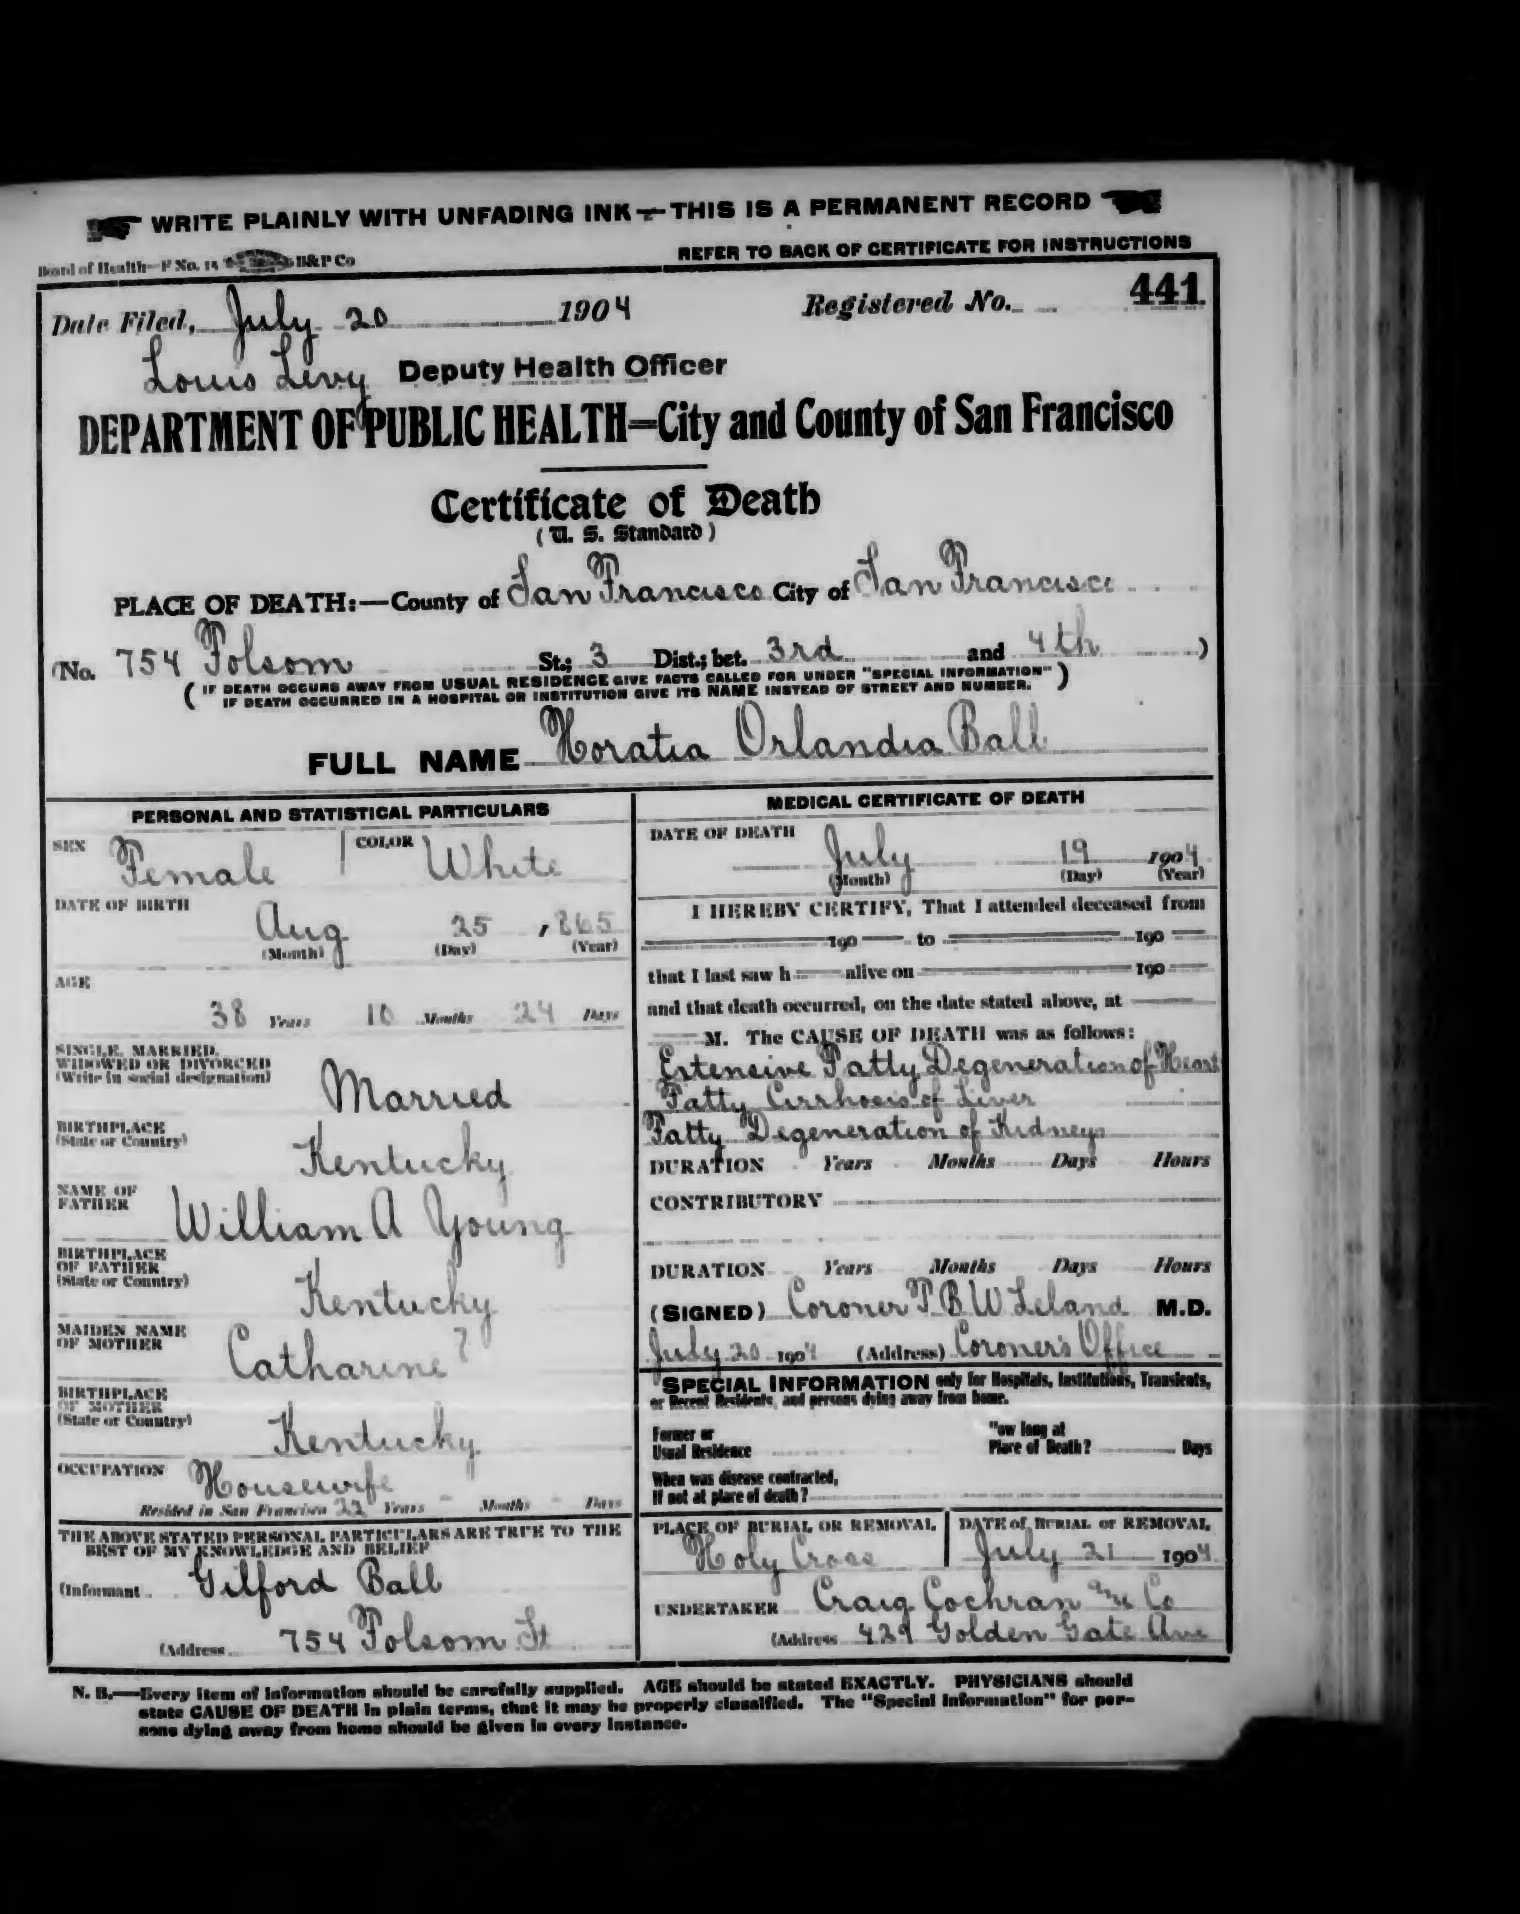 WRITE PLAINLY WITH UNFADING INK—THIS IS A PERMANENT RECORD
Board of Health—F No. 15 B&P Co
REFER TO BACK OF CERTIFICATE FOR INSTRUCTIONS
Date Filed, July 20 1904 Registered No. 441
Louis Levy Deputy Health Officer
DEPARTMENT OF PUBLIC HEALTH—City and County of San Francisco
Certificate of Death
(U. S. Standard)
PLACE OF DEATH:—County of San Francisco City of San Francisco
(No. 754 Folsom St.; 3 Dist.; bet. 3rd and 4th )
( IF DEATH OCCURS AWAY FROM USUAL RESIDENCE GIVE FACTS CALLED FOR UNDER "SPECIAL INFORMATION" )
IF DEATH OCCURRED IN A HOSPITAL OR INSTITUTION GIVE ITS NAME INSTEAD OF STREET AND NUMBER.
FULL NAME Horatia Orlandia Ball
PERSONAL AND STATISTICAL PARTICULARS
SEX Female COLOR White
DATE OF BIRTH
Aug 25 , 865
(Month) (Day) (Year)
AGE
38 Years 10 Months 24 Days
SINGLE, MARRIED,
WIDOWED OR DIVORCED
(Write in social designation)
Married
BIRTHPLACE
(State or Country)
Kentucky
NAME OF
FATHER
William A Young
BIRTHPLACE
OF FATHER
(State or Country)
Kentucky
MAIDEN NAME
OF MOTHER
Catharine ?
BIRTHPLACE
OF MOTHER
(State or Country)
Kentucky
OCCUPATION Housewife
Resided in San Francisco 22 Years - Months - Days
THE ABOVE STATED PERSONAL PARTICULARS ARE TRUE TO THE
BEST OF MY KNOWLEDGE AND BELIEF
(Informant Gilford Ball
(Address 754 Folsom St
MEDICAL CERTIFICATE OF DEATH
DATE OF DEATH
July 19 1904
(Month) (Day) (Year)
I HEREBY CERTIFY, That I attended deceased from
190 to 190
that I last saw h alive on 190
and that death occurred, on the date stated above, at
M. The CAUSE OF DEATH was as follows:
Extensive Fatty Degeneration of Heart
Fatty Cirrhosis of Liver
Fatty Degeneration of Kidneys
DURATION Years Months Days Hours
CONTRIBUTORY
DURATION Years Months Days Hours
(SIGNED) Coroner T B W Leland M.D.
July 20 1904 (Address) Coroner's Office
SPECIAL INFORMATION only for Hospitals, Institutions, Transients,
or Recent Residents, and persons dying away from home.
Former or
Usual Residence
How long at
Place of Death? Days
When was disease contracted,
If not at place of death?
PLACE OF BURIAL OR REMOVAL
Holy Cross
DATE of BURIAL or REMOVAL
July 21 1904
UNDERTAKER Craig Cochran & Co
(Address 429 Golden Gate Ave
N. B.—Every item of information should be carefully supplied. AGE should be stated EXACTLY. PHYSICIANS should
state CAUSE OF DEATH in plain terms, that it may be properly classified. The "Special Information" for per-
sons dying away from home should be given in every instance.